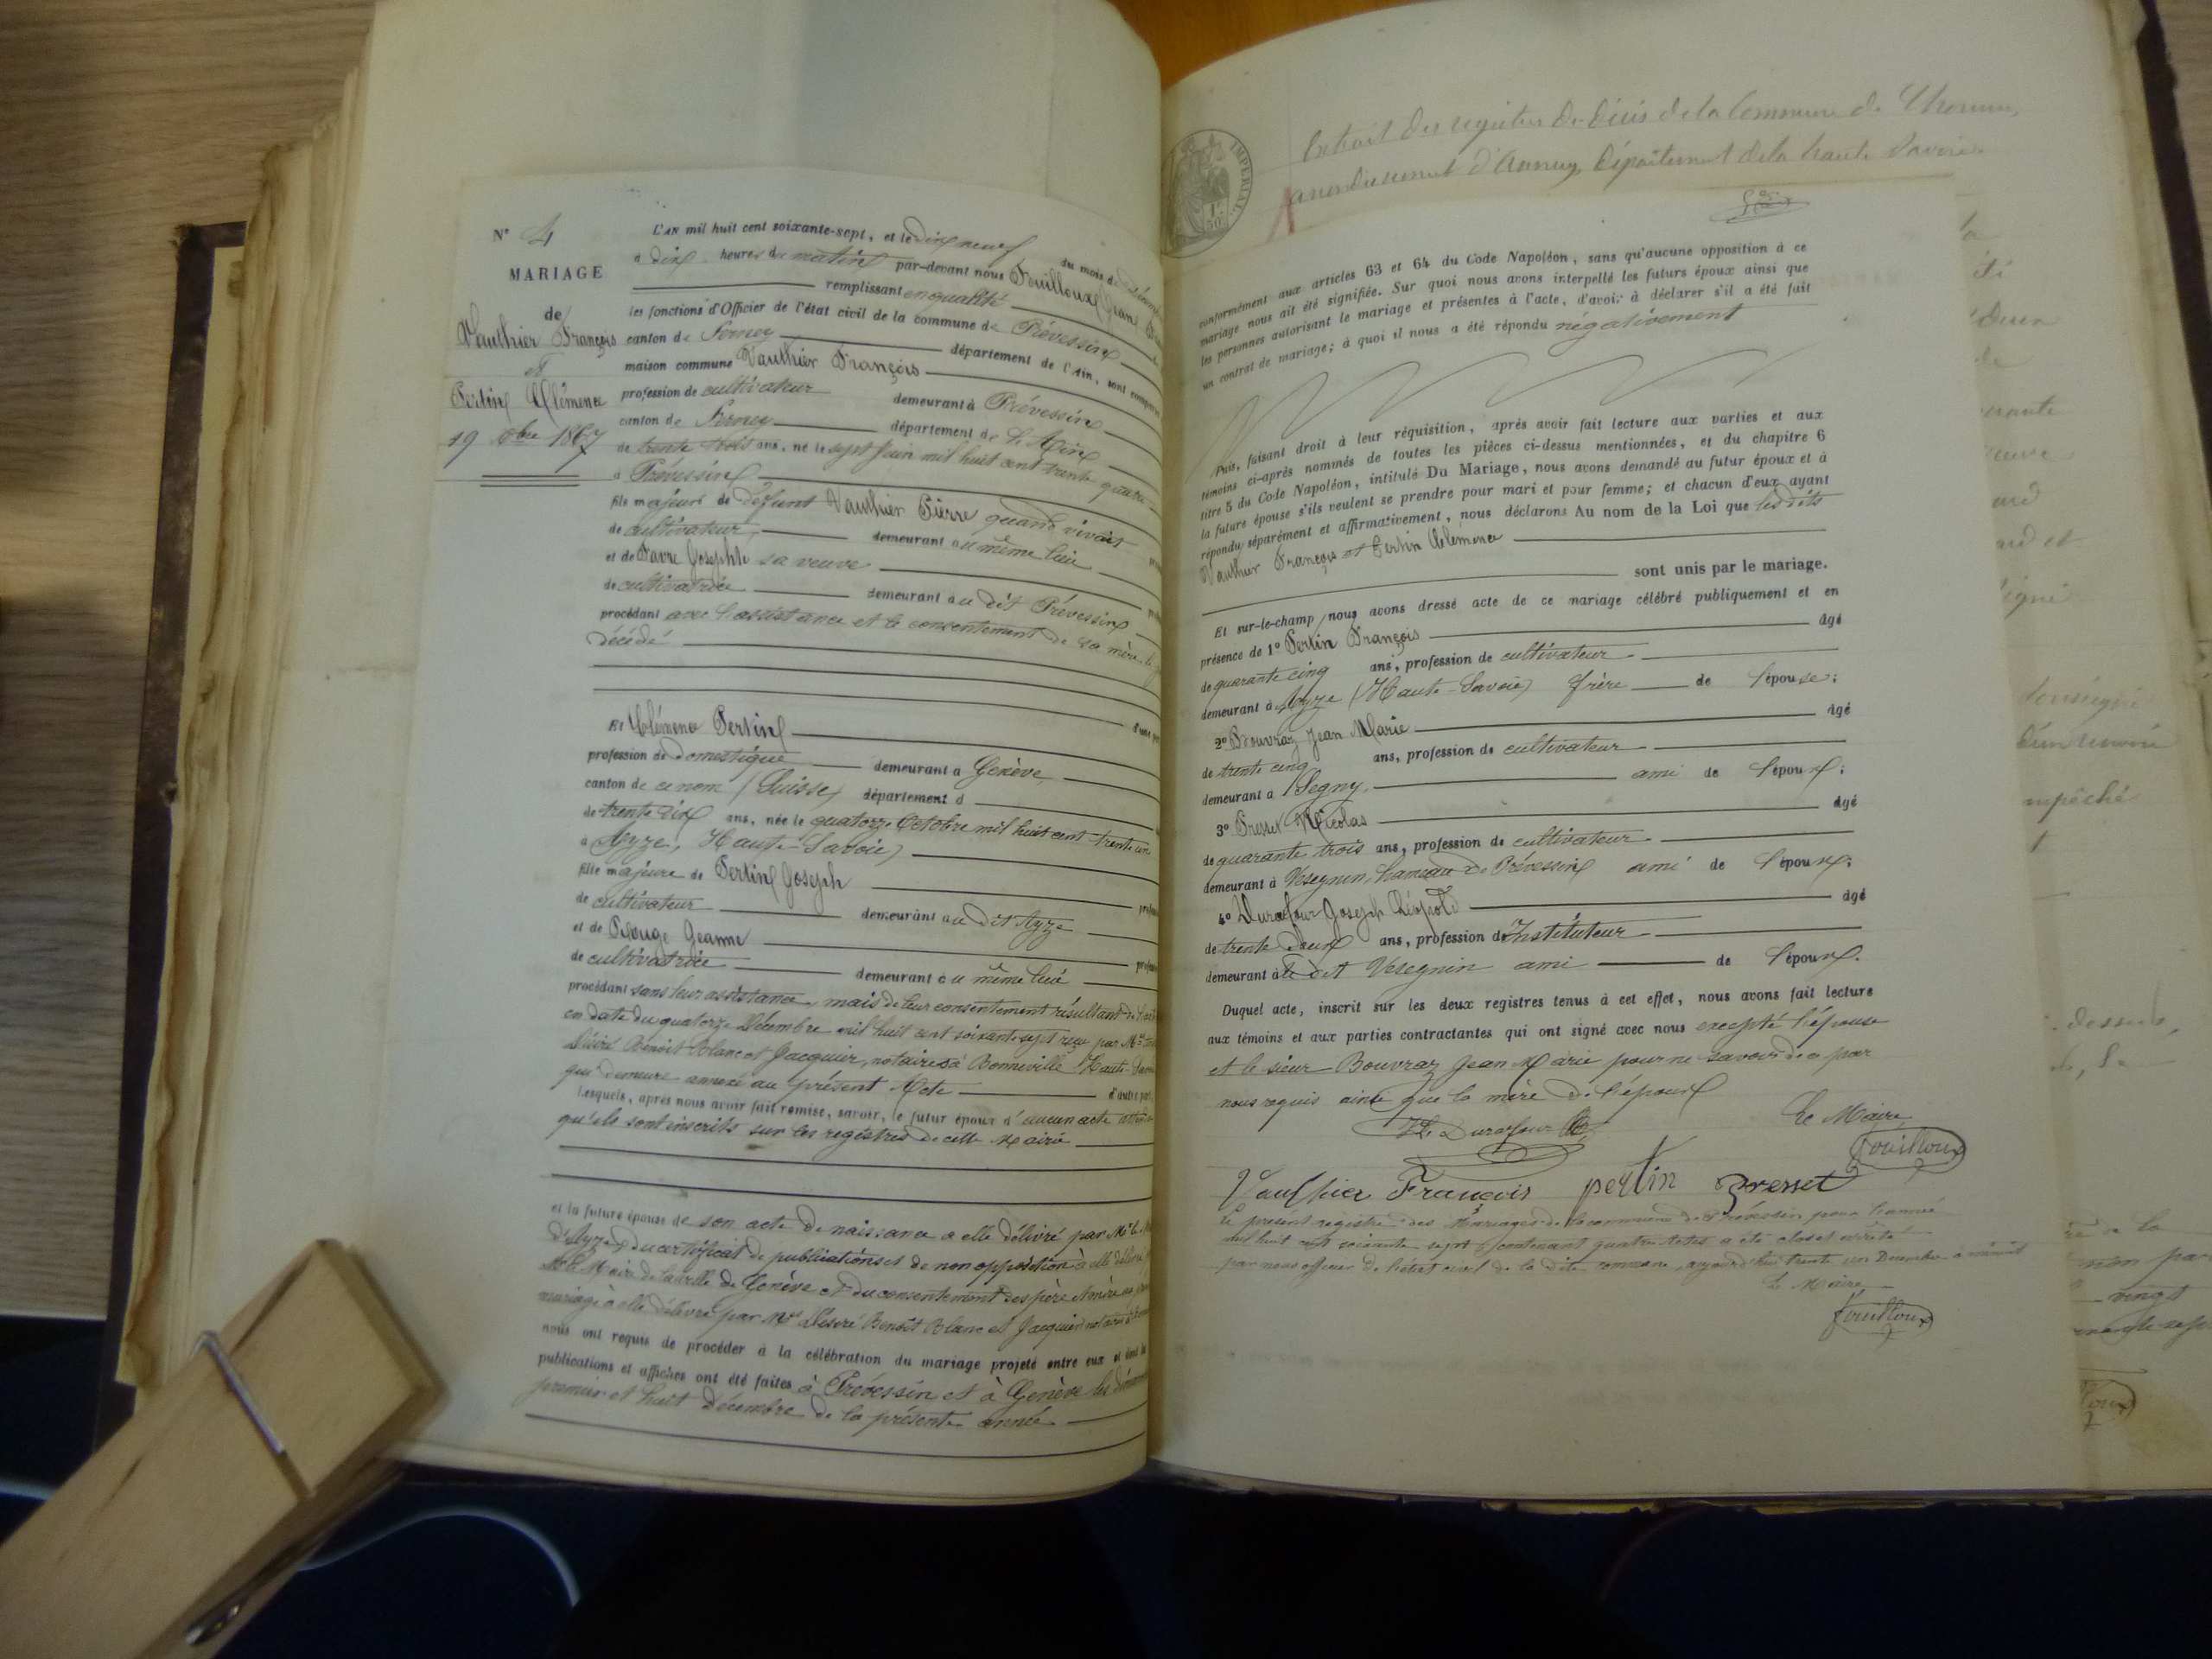 N° 4
MARIAGE
de
Vauthier François
et
Pertin Clémence
19 Xbre 1867
L'AN mil huit cent soixante-sept, et le dix neuf du mois de décembre
à dix heures du matin par-devant nous Fouilloux Jean
remplissant en qualité
les fonctions d'Officier de l'état civil de la commune de Prévessin
canton de Ferney département de l'Ain, sont comparus
maison commune Vauthier François
profession de cultivateur demeurant à Prévessin
canton de Ferney département de L'Ain
de trente trois ans, né le sept Juin mil huit cent trente quatre
à Prévessin
fils majeur de défunt Vauthier Pierre quand vivait
de cultivateur demeurant au même lieu
et de Favre Josephte sa veuve
de cultivatrice demeurant au dit Prévessin
procédant avec l'assistance et le consentement de sa mère le
décédé
Et Clémence Pertin d'une part
profession de domestique demeurant à Genève
canton de ce nom (Suisse) département d
de trente six ans, née le quatorze Octobre mil huit cent trente un
à Ayze, Haute-Savoie)
fille majeure de Pertin Joseph
de cultivateur demeurant au dit Ayze
et de Pelouge Jeanne
de cultivatrice demeurant au même lieu
procédant sans leur assistance, mais de leur consentement résultant de
en date du quatorze Décembre mil huit cent soixante sept reçu par Mes
Désiré Benoit Blanc et Jacquier, notaires à Bonneville Haute-Savoie
qui demeure annexé au présent Acte d'autre part
Lesquels, après nous avoir fait remise, savoir, le futur époux d'aucun acte attendu
qu'ils sont inscrits sur les registres de cette Mairie
et la future épouse de son acte de naissance à elle délivré par Mr le
d'Ayze, du certificat de publications et de non opposition à elle délivré
Mr le Maire de la ville de Genève et du consentement des père et mère au
mariage à elle délivré par Mes Désiré Benoit Blanc et Jacquier notaires à
nous ont requis de procéder à la célébration du mariage projeté entre eux et dont les
publications et affiches ont été faites à Prévessin et à Genève les dimanches
premier et huit décembre de la présente année
IMPERIAL
1F
50c
Extrait des registres de décès de la Commune de
arrondissement d'Annecy, Département de la haute Savoie.
conformément aux articles 63 et 64 du Code Napoléon, sans qu'aucune opposition à ce
mariage nous ait été signifiée. Sur quoi nous avons interpellé les futurs époux ainsi que
les personnes autorisant le mariage et présentes à l'acte, d'avoir à déclarer s'il a été fait
un contrat de mariage; à quoi il nous a été répondu négativement
Puis, faisant droit à leur réquisition, après avoir fait lecture aux parties et aux
témoins ci-après nommés de toutes les pièces ci-dessus mentionnées, et du chapitre 6
titre 5 du Code Napoléon, intitulé Du Mariage, nous avons demandé au futur époux et à
la future épouse s'ils veulent se prendre pour mari et pour femme; et chacun d'eux ayant
répondu séparément et affirmativement, nous déclarons Au nom de la Loi que lesdits
Vauthier François et Pertin Clémence
sont unis par le mariage.
Et sur-le-champ nous avons dressé acte de ce mariage célébré publiquement et en
présence de 1° Pertin François âgé
de quarante cinq ans, profession de cultivateur
demeurant à Ayze (Haute-Savoie) frère de l'épouse;
2° Bouvraz Jean Marie âgé
de trente cinq ans, profession de cultivateur
demeurant à Segny. ami de l'époux;
3° Presset Nicolas âgé
de quarante trois ans, profession de cultivateur
demeurant à Vesegnin, hameau de Prévessin ami de l'époux;
4° Duraffour Joseph Léopold âgé
de trente deux ans, profession d'Instituteur
demeurant à le dit Vesegnin ami de l'époux.
Duquel acte, inscrit sur les deux registres tenus à cet effet, nous avons fait lecture
aux témoins et aux parties contractantes qui ont signé avec nous excepté l'épouse
et le sieur Bouvraz Jean Marie pour ne savoir de ce par
nous requis ainsi que la mère de l'époux
Duraffour Le Maire
Fouilloux
Vauthier François pertin Presset
Le présent registre des Mariages de la commune de Prévessin pour l'année
mil huit cent soixante sept contenant quatre actes a été clos et arrêté
par nous officier de l'état civil de la dite commune, aujourd'hui trente un Décembre à minuit
Le Maire
Fouilloux